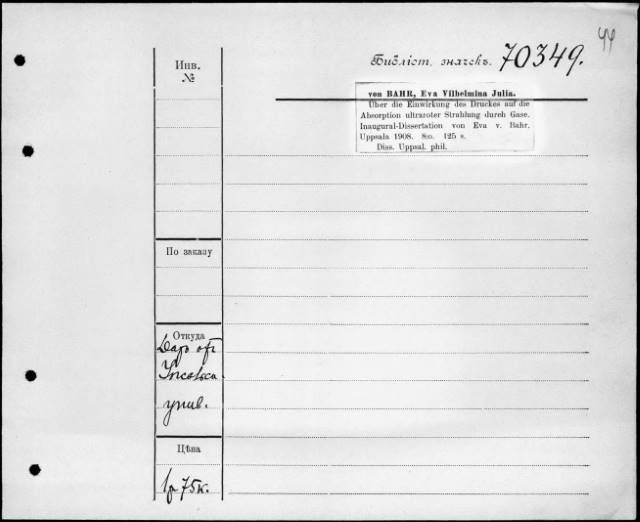 44
Библіот. значекъ. 70349.
Инв.
№
von BAHR, Eva Vilhelmina Julia.
Über die Einwirkung des Druckes auf die
Absorption ultraroter Strahlung durch Gase.
Inaugural-Dissertation von Eva v. Bahr.
Uppsala 1908. 8:o. 125 s.
Diss. Uppsal. phil.
По заказу
Откуда
Даръ отъ
унив.
Цѣна
1р 75к.